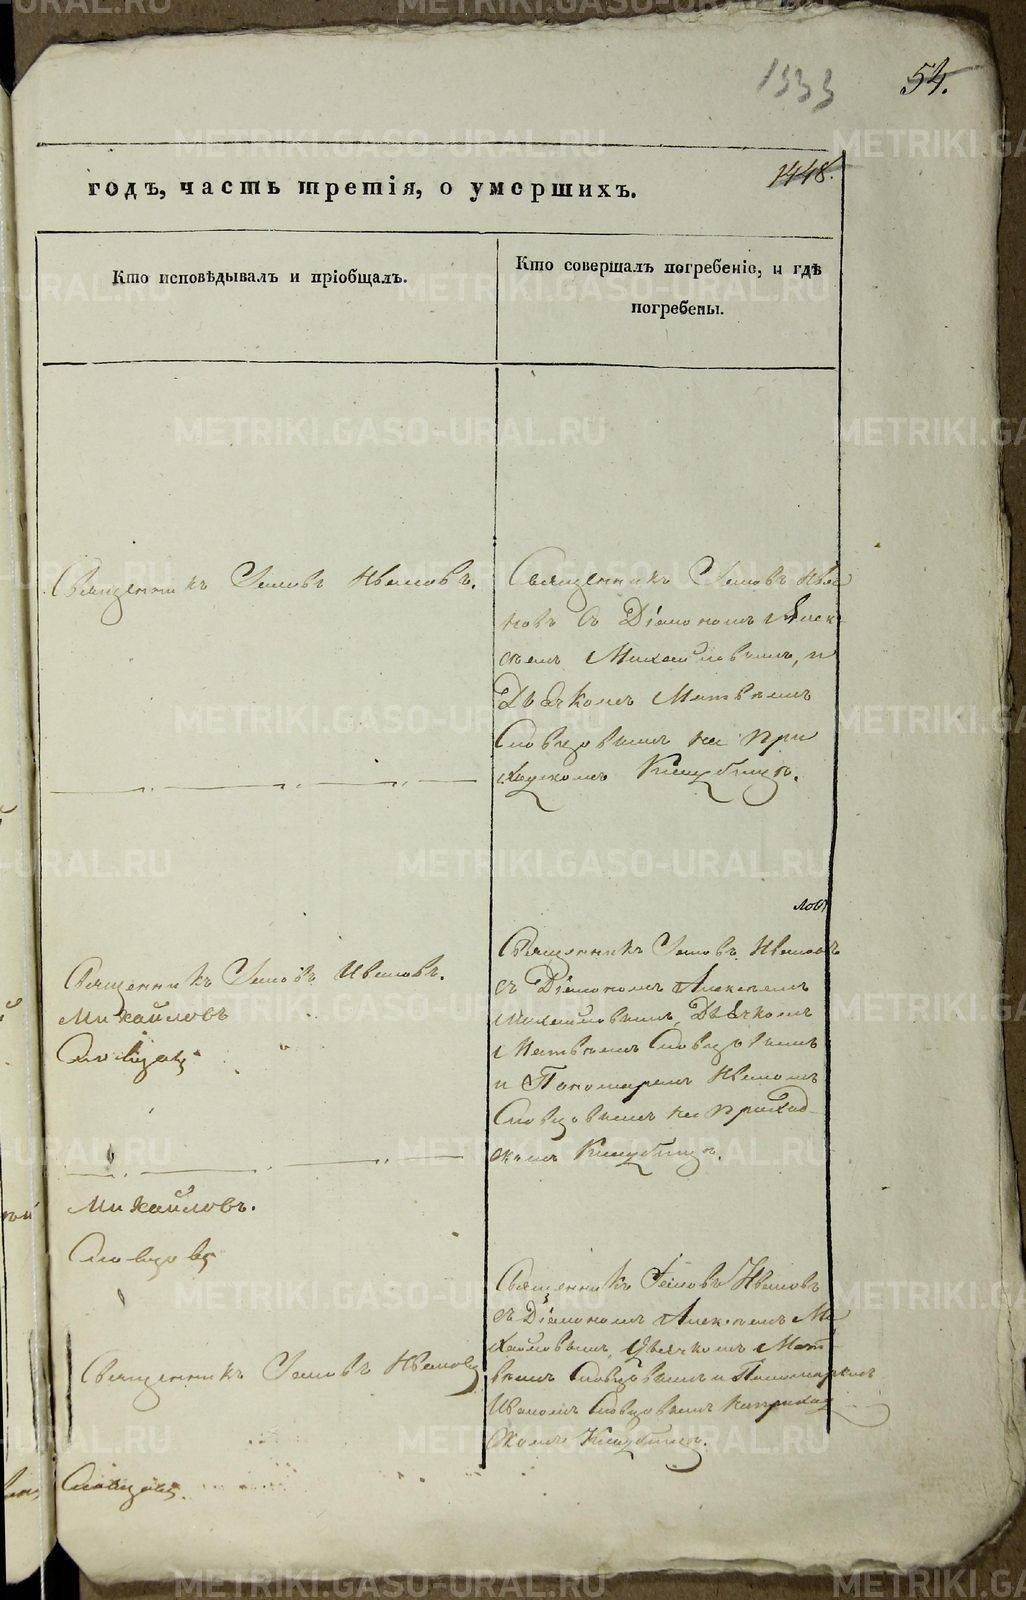 1333
54.
1448.
годъ, часть третія, о умершихъ.
Кто исповѣдывалъ и пріобщалъ.
Кто совершалъ погребеніе, и гдѣ
погребены.
Священникъ Іаковъ Ивановъ.
Священникъ Іаковъ Ива
новъ съ Діакономъ Алек
сѣемъ Михайловымъ, и
Дьячкомъ Матвѣемъ
Словцовымъ на При
ходскомъ Кладбищѣ.
Священникъ Іаковъ Ивановъ.
Михайловъ
Словцовъ
Священникъ Іаковъ Ивановъ
съ Діакономъ Алексѣемъ
Михайловымъ, Дьячкомъ
Матвѣемъ Словцовымъ
и Пономаремъ Иваномъ
Словцовымъ на приход
скомъ Кладбищѣ.
Михайловъ.
Словцовъ
Священникъ Іаковъ Ивановъ
Священникъ Іаковъ Ивановъ
съ Діакономъ Алексѣемъ Ми
хайловымъ, Дьячкомъ Мат
вѣемъ Словцовымъ и Пономаремъ
Иваномъ Словцовымъ на приход
скомъ Кладбищѣ.
Словцовъ.
METRIKI.GASO-URAL.RU